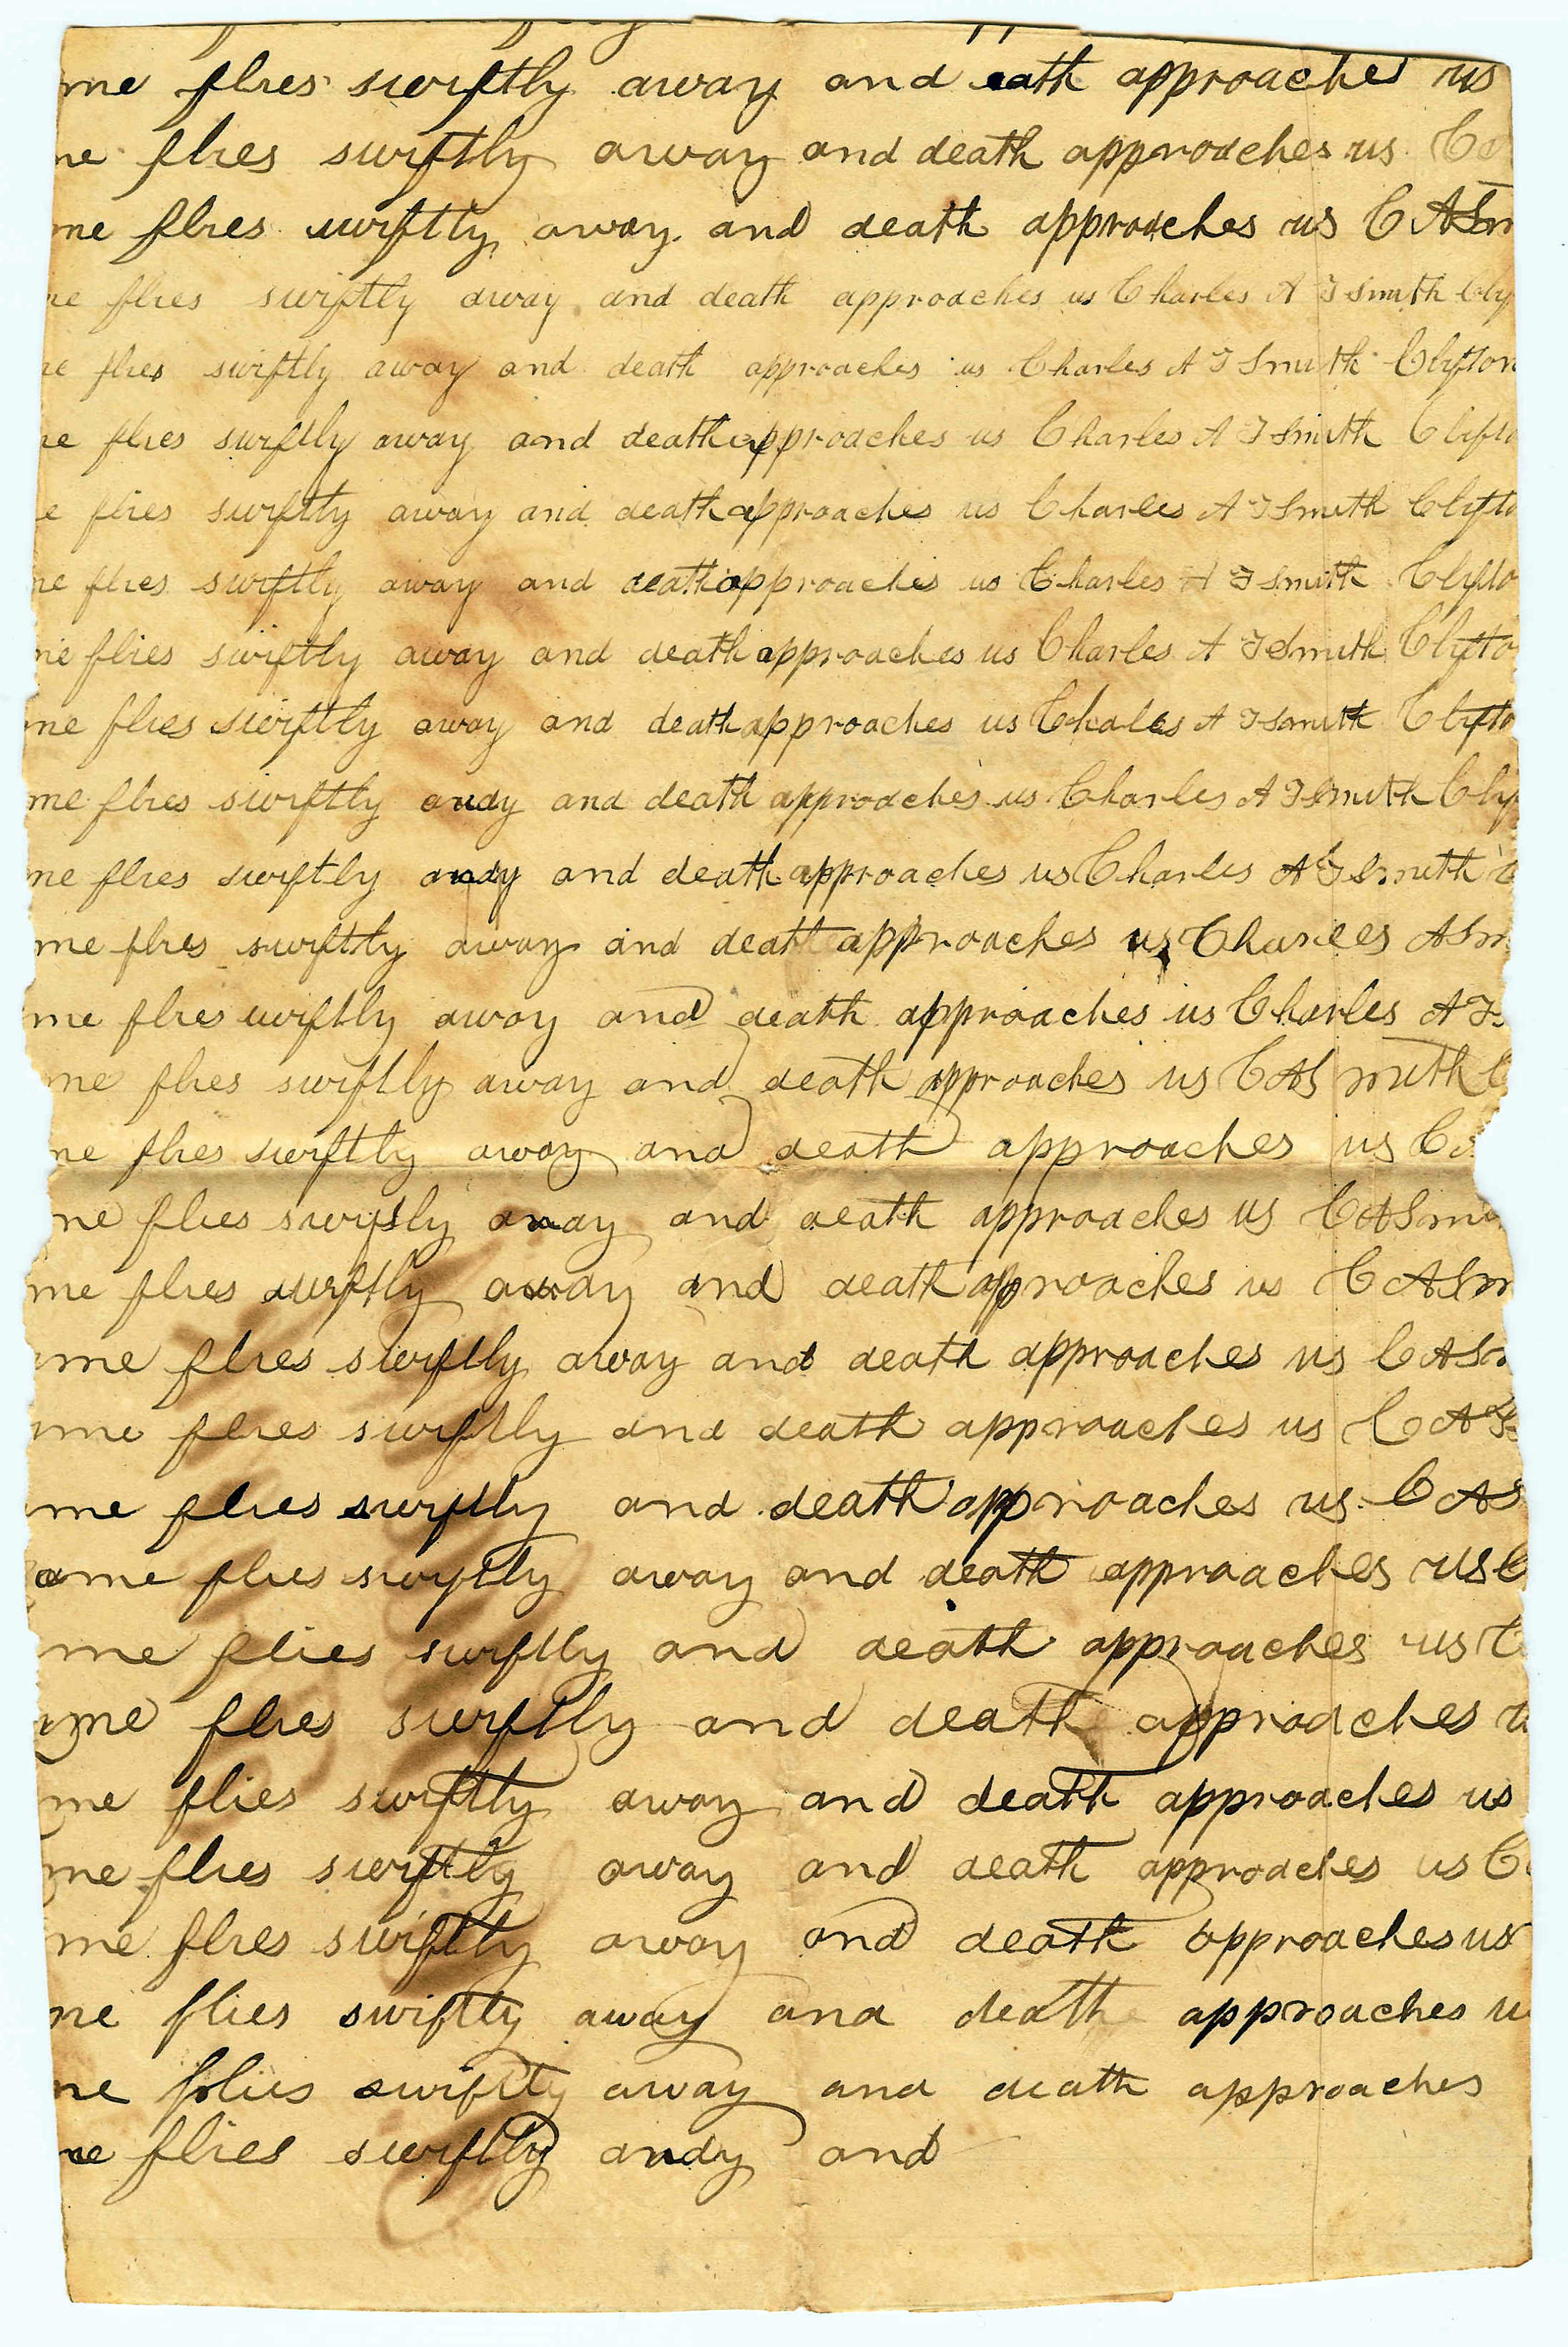 me flies swiftly away and eath approaches us
ne flies swiftly away and death approaches us Co
me flies swiftly away and death approaches us C A Sm
ne flies swiftly away and death approaches us Charles A T Smith Clif
ne flies swiftly away and death approaches us Charles A T Smith Clifton
ne flies swiftly away and death approaches us Charles A T Smith Clifto
e flies swiftly away and death approaches us Charles A T Smith Clifto
ne flies swiftly away and death approaches us Charles A T Smith Clifto
me flies swiftly away and death approaches us Charles A T Smith Clifto
me flies swiftly away and death approaches us Chales A T Smith Clifto
me flies swiftly anday and death approaches us Charles A T Smith Clif
me flies swiftly anday and death approaches us Charles A T Smith C
me flies swiftly away and death approaches us Charles A Sm
me flies wiftly away and death approaches us Charles A T S
me flies swiftly away and death approaches us C A Smith C
ne flies swiftly away and death approaches us C A
ne flies swifsly away and death approaches us C A Smi
me flies swiftly away and death approaches us C A Sm
ime flies swiftly away and death approaches us C A Sm
ime flies swiftly and death approaches us C A T
me flies swiftly and death approaches us C A S
ame flies swiftly away and death approaches us C
me flies swiftly and death approaches us C
ime flies swiftly and death approaches u
me flies swiftly away and death approaches us
me flies swiftly away and death approaches us C
me flies swiftly away and death approaches us
ne flies swiftly away and death approaches u
ne folies swiftly away and death approaches
ne flies swiftly anday and